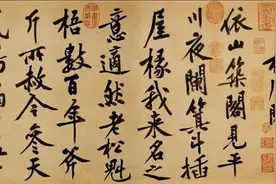 依山築閣見平
川夜闌箕斗插
屋椽我來名之
意適然老松魁
梧數百年斧
斤所赦今參天